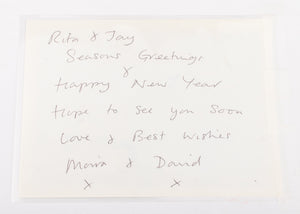 Rita & Jay
Seasons Greetings
&
Happy New Year
Hope to see you soon
Love & Best Wishes
Moira & David
x x